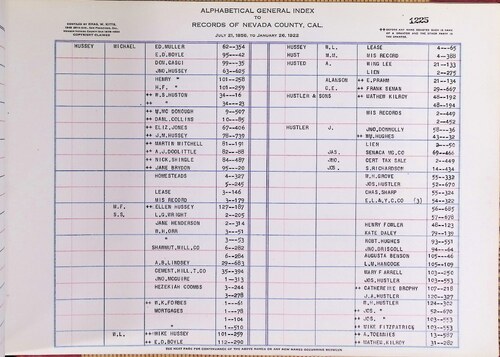 ALPHABETICAL GENERAL INDEX
TO
RECORDS OF NEVADA COUNTY, CAL.
1225
HUSSEY MICHAEL ED.MULLER 62--354
E.D.BOYLE 95---42
DON.GASUI 99---35
JNO.HUSSEY 63--625
HENRY " 101--258
H.F. " 101--259
++ R.S.HUSTON 34---16
++ " 34---23
++ M.MC DONOUGH 9--507
++ DARL.COLLINS 10---85
++ ELIZ.JONES 67--406
++ J.M.HUSSEY 78--739
++ MARTIN MITCHELL 81--191
++ A.J.DOOLITTLE 82---88
++ NICK.SHINGLE 84--487
++ JANE BRYDON 95---20
HOMESTEADS 4--327
5--245
LEASE 3--146
MIS RECORD 3--179
M.F. ++ ELLEN HUSSEY 127--187
S.S. L.G.WRIGHT 2--205
JANE HENDERSON 2--314
B.H.ORR 3---51
" 3---53
SHAWMUT,MILL,CO 6--282
6--284
A.B.LINDSEY 29--683
CEMENT,HILL,T,CO 35--394
JNO.MCGUIRE 1--313
HEZEKIAH COOMBS 3--244
3--278
++ R.K.FORBES 3---61
MORTGAGES 1---78
" 1--104
" 1--510
W.L. ++ MIKE HUSSEY 101--259
++ E.D.BOYLE 112--290
HUSSEY W.L. LEASE 4---65
HUST M.M. MIS RECORD 4--388
HUSTED A. WING LEE 21--133
LIEN 2--275
ALANSON ++ E.PRAHM 21--134
G.E. ++ FRANK BEMAN 29--667
HUSTLER & SONS ++ MATHEW KILROY 48--192
48--194
MIS RECORDS 2--449
2--452
HUSTLER J. JNO.DONNOLLY 58---36
++ MW.HUGHES 43---32
LIEN 2---50
JAS. SENACA MG.CO 49--466
JNO. CERT TAX SALE 2--449
JOS. S.RICHARDSON 14--434
R.H.GROVE 55--332
JOS.HUSTLER 52--670
CHAS.SHARP 55--324
E.L.&.Y.CO (3) 54--322
56--685
57--678
HENRY FOWLER 48--123
KATE DALEY 79--139
ROBT.HUGHES 93--551
JNO.DRISCOLL 94---64
AUGUSTA BENSON 105---46
L.M.HANCOCK 105--109
MARY FARRELL 103--250
JOS.HUSTLER 103--553
++ CATHERINE BROPHY 107--218
J.A.HUSTLER 120--327
R.H.HUSTLER 124--302
++ JOS. " 52--670
++ JOS. " 103--553
++ MIKE FITZPATRICK 103--553
++ A.TOEUSHIE 13--587
++ MATHEW.KILROY 31--282